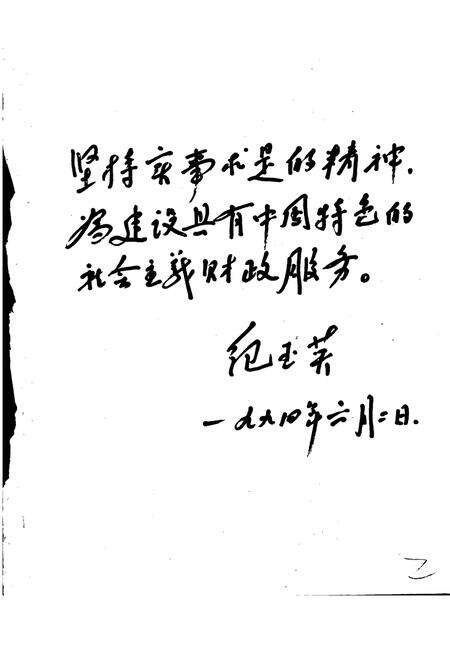 坚持实事求是的精神,
为建设具有中国特色的
社会主义财政服务。
纪玉英
一九九四年六月二日.